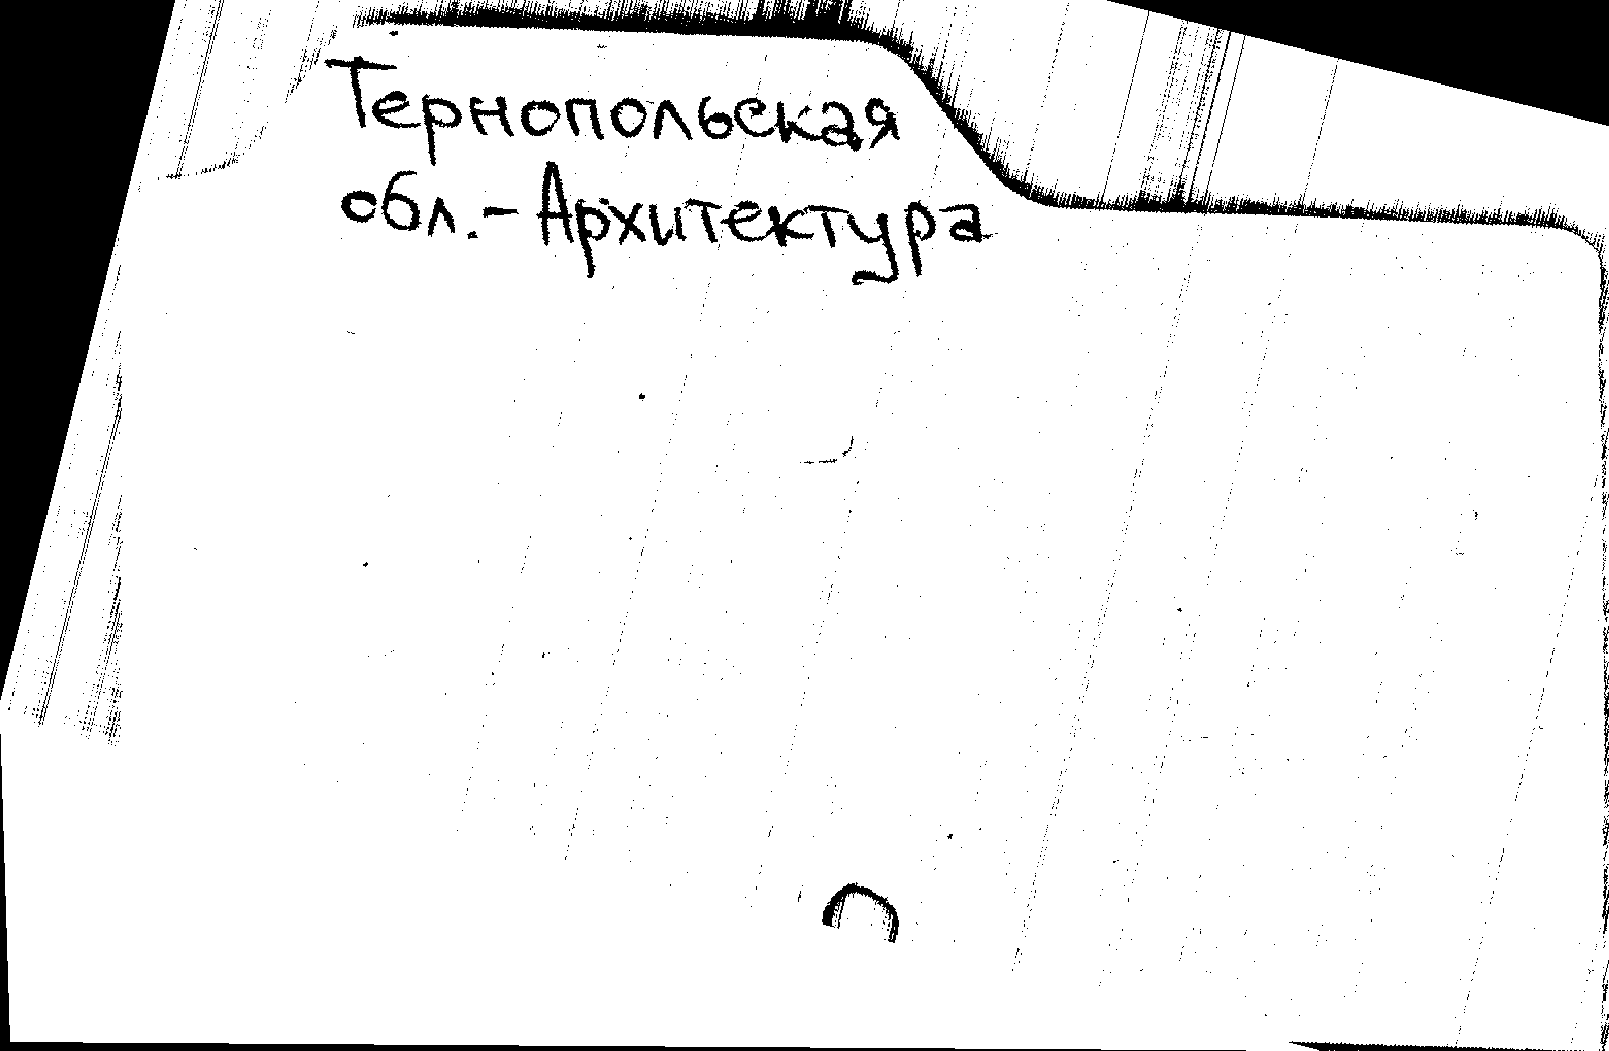 Тернопольская
обл.-Архитектура